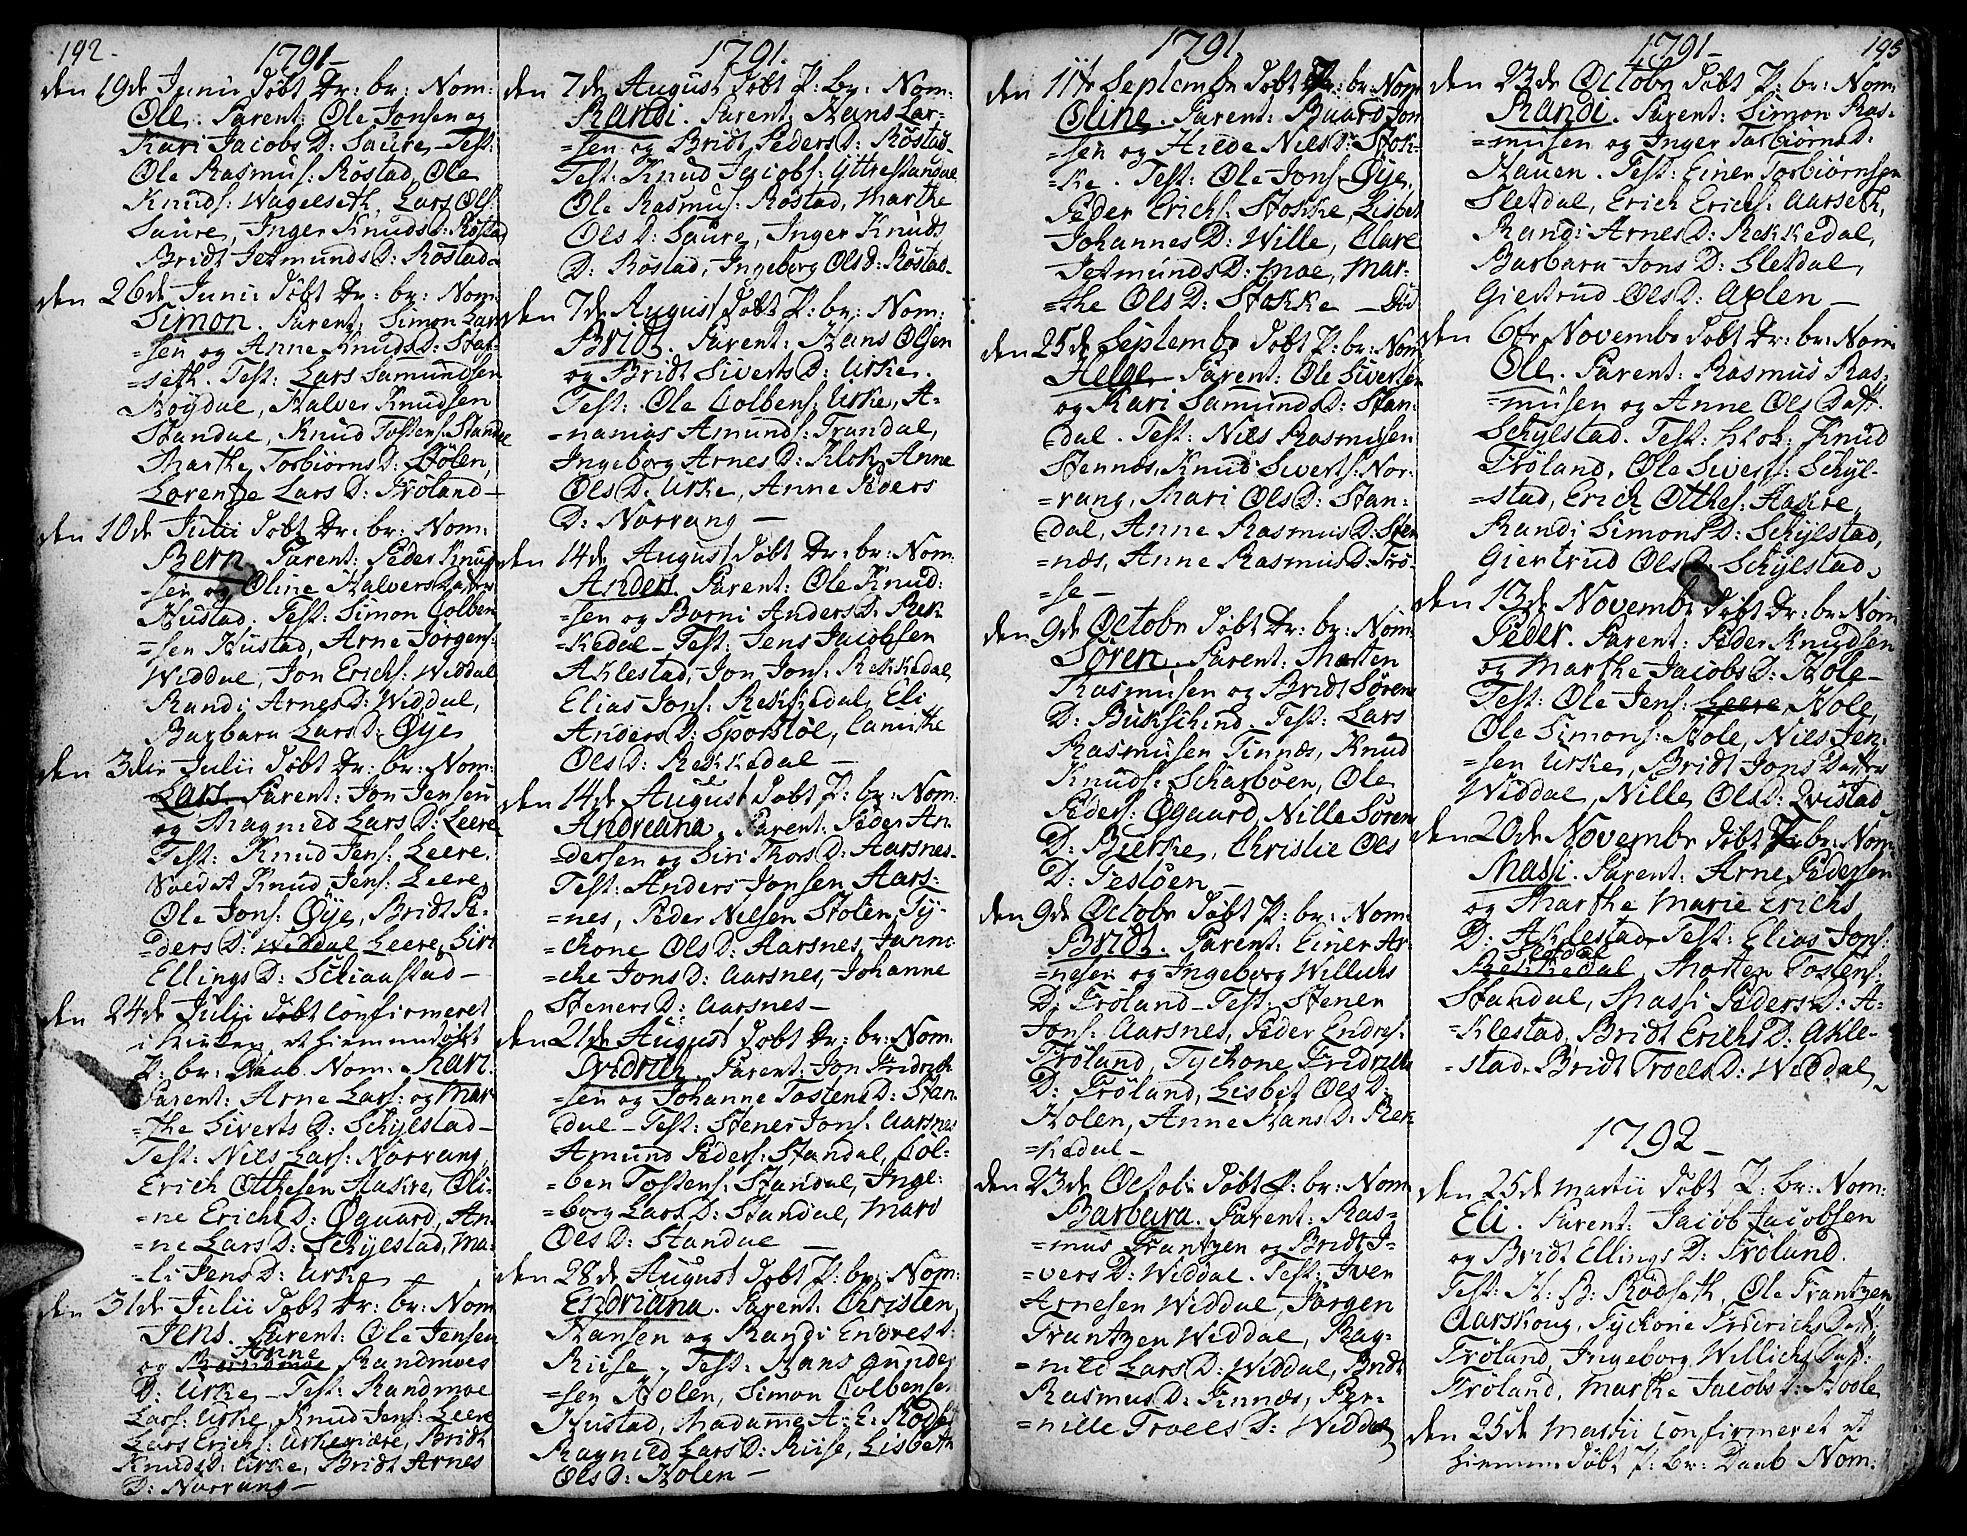 192-
1791-
den 19de Junii døbt Dr: br: Nom:
Ole. Parent: Ole Jonsen og
Kari Jacobs D: Saure. Test:
Ole Rasmus: Røstad, Ole
Knuds: Wagelseth, Lars Ols:
Saure, Inger Knuds D: Røstad
Bridt Jetmunds D: Røstad-
den 26de Junii døbt Dr: br: Nom:
Simon. Parent: Simon Lar-
=sen og Anne Knuds D: Star-
=seth. Test: Lars Samundsen
Nøÿdal, Halver Knudsen
Standal, Knud Tostens: Standal
Marthe Torbiørns D: Stølen,
Lorentze Lars D: Frøland-
den 10de Julii døbt Dr: br: Nom:
Bern. Parent: Peder Knud-
=sen og Oline Halvers Datter
Hustad. Test: Simon Colben-
=sen Hustad, Arne Jørgens:
Widdal, Jon Erichs: Widdal
Randi Arnes D: Widdal,
Barbara Lars D: Øÿe
den 3die Julii døbt Dr: br: Nom:
Lars. Parent: Jon Jensen
og Magnild Lars D: Leere
Test: Knud Jens: Leere,
Knud Jens: Leere,
Ole Jons: Øÿe, Bridt Pe-
=ders D: Widdal Leere, Siri
Ellings D: Skiaastad-
den 24de Julii døbt Confirmeret
i Kirken et hiemmedøbt
P: br: Daab. Nom: Kari.
Parent: Arne Lars: og Mar-
=the Siverts D: Schÿlstad-
Test: Niels Lars: Norvang,
Erich Otthesen Aakre, Oli-
=ne Erichs D: Øgaard, An-
=ne Lars D: Schÿlstad, Ma-
=li Jens D: Urke
den 31de Julii døbt Dr: br: Nom
Jens. Parent: Ole Jensen
Anne
og Randmoes
D: Urke- Test: Randmoe
Lars: Urke, Knud Jens: Leere
Lars Erichs: Urkeeidre, Bridt
Knuds D: Urke, Bridt Arnes
D: Norvang-
1791.
den 7de August døbt P: br: Nom:
Randi. Parent: Hans Lar-
=sen og Bridt Peders D: Røstad-
Test: Knud Jacobs: Ÿttrestandal
Ole Rasmus: Røstad, Marthe
Ols D: Saure, Inger Knuds
D: Røstad, Ingeborg Ols D: Røstad-
den 7de August døbt P: br: Nom:
Bridt. Parent: Hans Olsen
og Bridt Siverts D: Urke.
Test: Ole Colbens: Urke, A-
=nanias Amunds: Trandal,
Ingeborg Arnes D: Klok, Anne
Ols D: Urke, Anne Peders
D: Norvang-
den 14de August døbt Dr: br: Nom:
Anders. Parent: Ole Knud:
=sen og Barni Anders D: Rek-
=kedal- Test: Jens Jacobsen
Aklestad, Jon Jons: Rekkedal,
Elias Jons: Rekkedal, Eli
Anders D: Sporstøl, Camithe
Ols D: Rekkedal-
den 14de August døbt P: br: Nom:
Andreana. Parent: Peder An-
=dersen og Siri Thors D: Aarsnes-
Test: Anders Jonsen Aars:
=nes, Peder Nielsen Stølen, Tÿ-
=chone Ols D: Aarsnes, Janni-
=che Jons D: Aarsnes, Johanne
Steners D: Aarsnes-
den 21de August døbt Dr: br: Nom:
Fridrich. Parent: Jon Fridrich-
=sen og Johanne Tostens D: Stan-
=dal- Test: Stener Jons: Aarsnes
Amund Peders: Standal, Col-
=ben Tostens: Standal, Inge-
=borg Lars D: Standal, Mari
Ols D: Standal-
den 28de August døbt P: br: Nom:
Endriana. Parent: Christen
Hansen og Randi Endres D:
Riise, Test: Hans Gunder-
=sen Holen, Simon Colbensen
Hustad, Madame A: E: Rødset
Ragnild Lars D: Riise, Lisbeth
Ols D: Holen-
1791.
den 11te Septembr døbt P: br: Nom
Oline. Parent: Baard Jon-
=sen og Hilde Niels D: Stok-
=ke. Test: Ole Jons: Øÿe,
Peder Erichs: Stokke, Lisbet
Johannes D: Wille, Clare
Jetmunds D: Moe, Mar-
=the Ols D: Stokke-
den 25de Septembr døbt P: br: Nom
Helge. Parent: Ole Siversen
og Kari Samunds D: Stan-
=dal. Test: Niels Rasmusen
Stennæs, Knud Siverts: Nor-
=vang, Mari Ols D: Stan-
=dal, Anne Rasmus D: Sten-
=næs, Anne Rasmus D: Frø-
=se-
den 9de Octobr døbt Dr: br: Nom:
Søren. Parent: Morten
Rasmusen og Bridt Sørens
D: Bukschind. Test: Lars
Rasmusen Finnæs, Knud
Knuds: Scharbøen, Ole
Peders: Øgaard, Nille Sørens
D: Bierke, Christie Ols
D: Testøen-
den 9de Octobr døbt P: br: Nom:
Bridt. Parent: Einer Ar-
=nesen og Ingeborg Willichs
D: Frøland- Test: Stener
Jons: Aarsnes, Peder Endres:
Frøland, Tÿchone Fridrichs
D: Frøland, Lisbet Ols D:
Holen, Anne Hans D: Rek-
=kedal-
den 23de Octobr døbt P: br: Nom
Barbara. Parent: Ras-
=mus Frantzen og Bridt I-
=vers D: Widdal. Test: Iver
Arnesen Widdal, Jørgen
Frantzen Widdal, Rag-
=nild Lars D: Widdal, Bridt
Rasmus D: Finnæs, Per-
=nille Troels D: Widdal
1791-
193
den 23de Octobr døbt P: br: Nom
Randi. Parent: Simon Ras-
=musen og Inger Torbiørns D:
Hauen. Test: Einer Torbiørnsen
Sletdal, Erich Erichs: Aarseth,
Randi Arnes D: Rekkedal,
Barbara Jons D: Sletdal,
Giertrud Ols D: Axlen-
den 6te Novembr døbt Dr: br: Nom
Ole. Parent: Rasmus Ras-
=musen og Anne Ols Datt:
Schÿlstad. Test: Klok: Knud
Frøland, Ole Siverts: Schÿl-
=stad, Erich Otthes: Aakre,
Randi Simons D: Schÿlstad,
Giertrud Ols D: Schÿlstad,
den 13de Novembr døbt Dr: br: Nom
Peder. Parent: Peder Knudsen
og Marthe Jacobs D: Hole-
Test: Ole Jens: Leere Hole,
Ole Simons: Hole, Niels Jen-
=sen Urke, Bridt Jons Datter
Widdal, Nille Ols D: Qvistad
den 20de Novembr døbt P: br: Nom:
Massi. Parent: Arne Pedersen
og Marthe Marie Erichs
D: Aklestad Test: Elias Jons:
Sletdal
Rekkedal, Morten Tostens:
Standal, Massi Peders D: A-
=klestad, Bridt Erichs D: Akle-
=stad. Bridt Troels D: Widdal-
1792-
den 25de Martii døbt P: br: Nom:
Eli. Parent: Jacob Jacobsen
og Bridt Ellings D: Frøland.
Test: H: B: Rødseth, Ole Frantzen
Aarskoug, Tÿchone Friderichs Datt:
Frøland, Ingeborg Willichs Datt:
Frøland, Marthe Jacobs D: Hoole
den 25de Martii Confirmeret et
hiemme døbt P: br: Daab Nom: